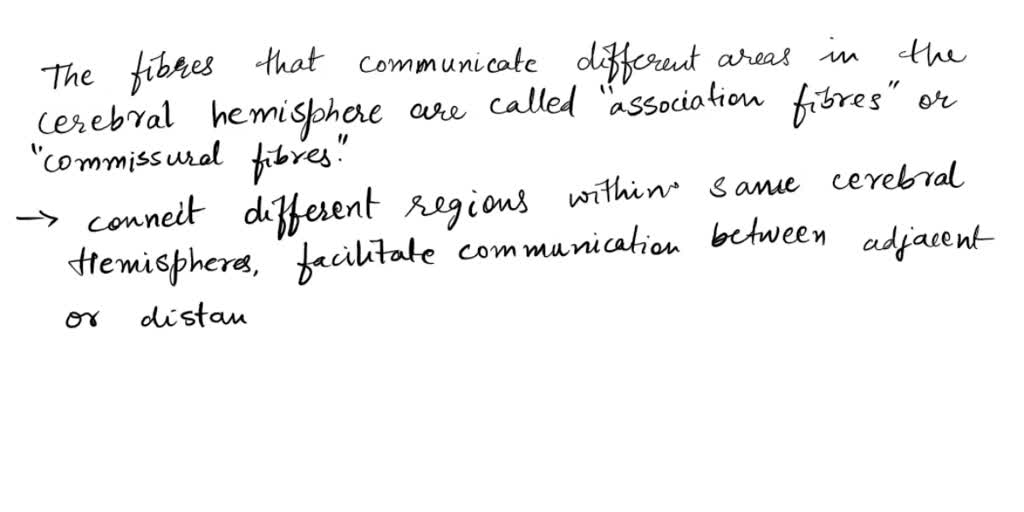 The fibres that communicate different areas in the
cerebral hemisphere are called "association fibres" or
"commissural fibres."
→ connect different regions within same cerebral
Hemispheres, facilitate communication between adjacent
or distan